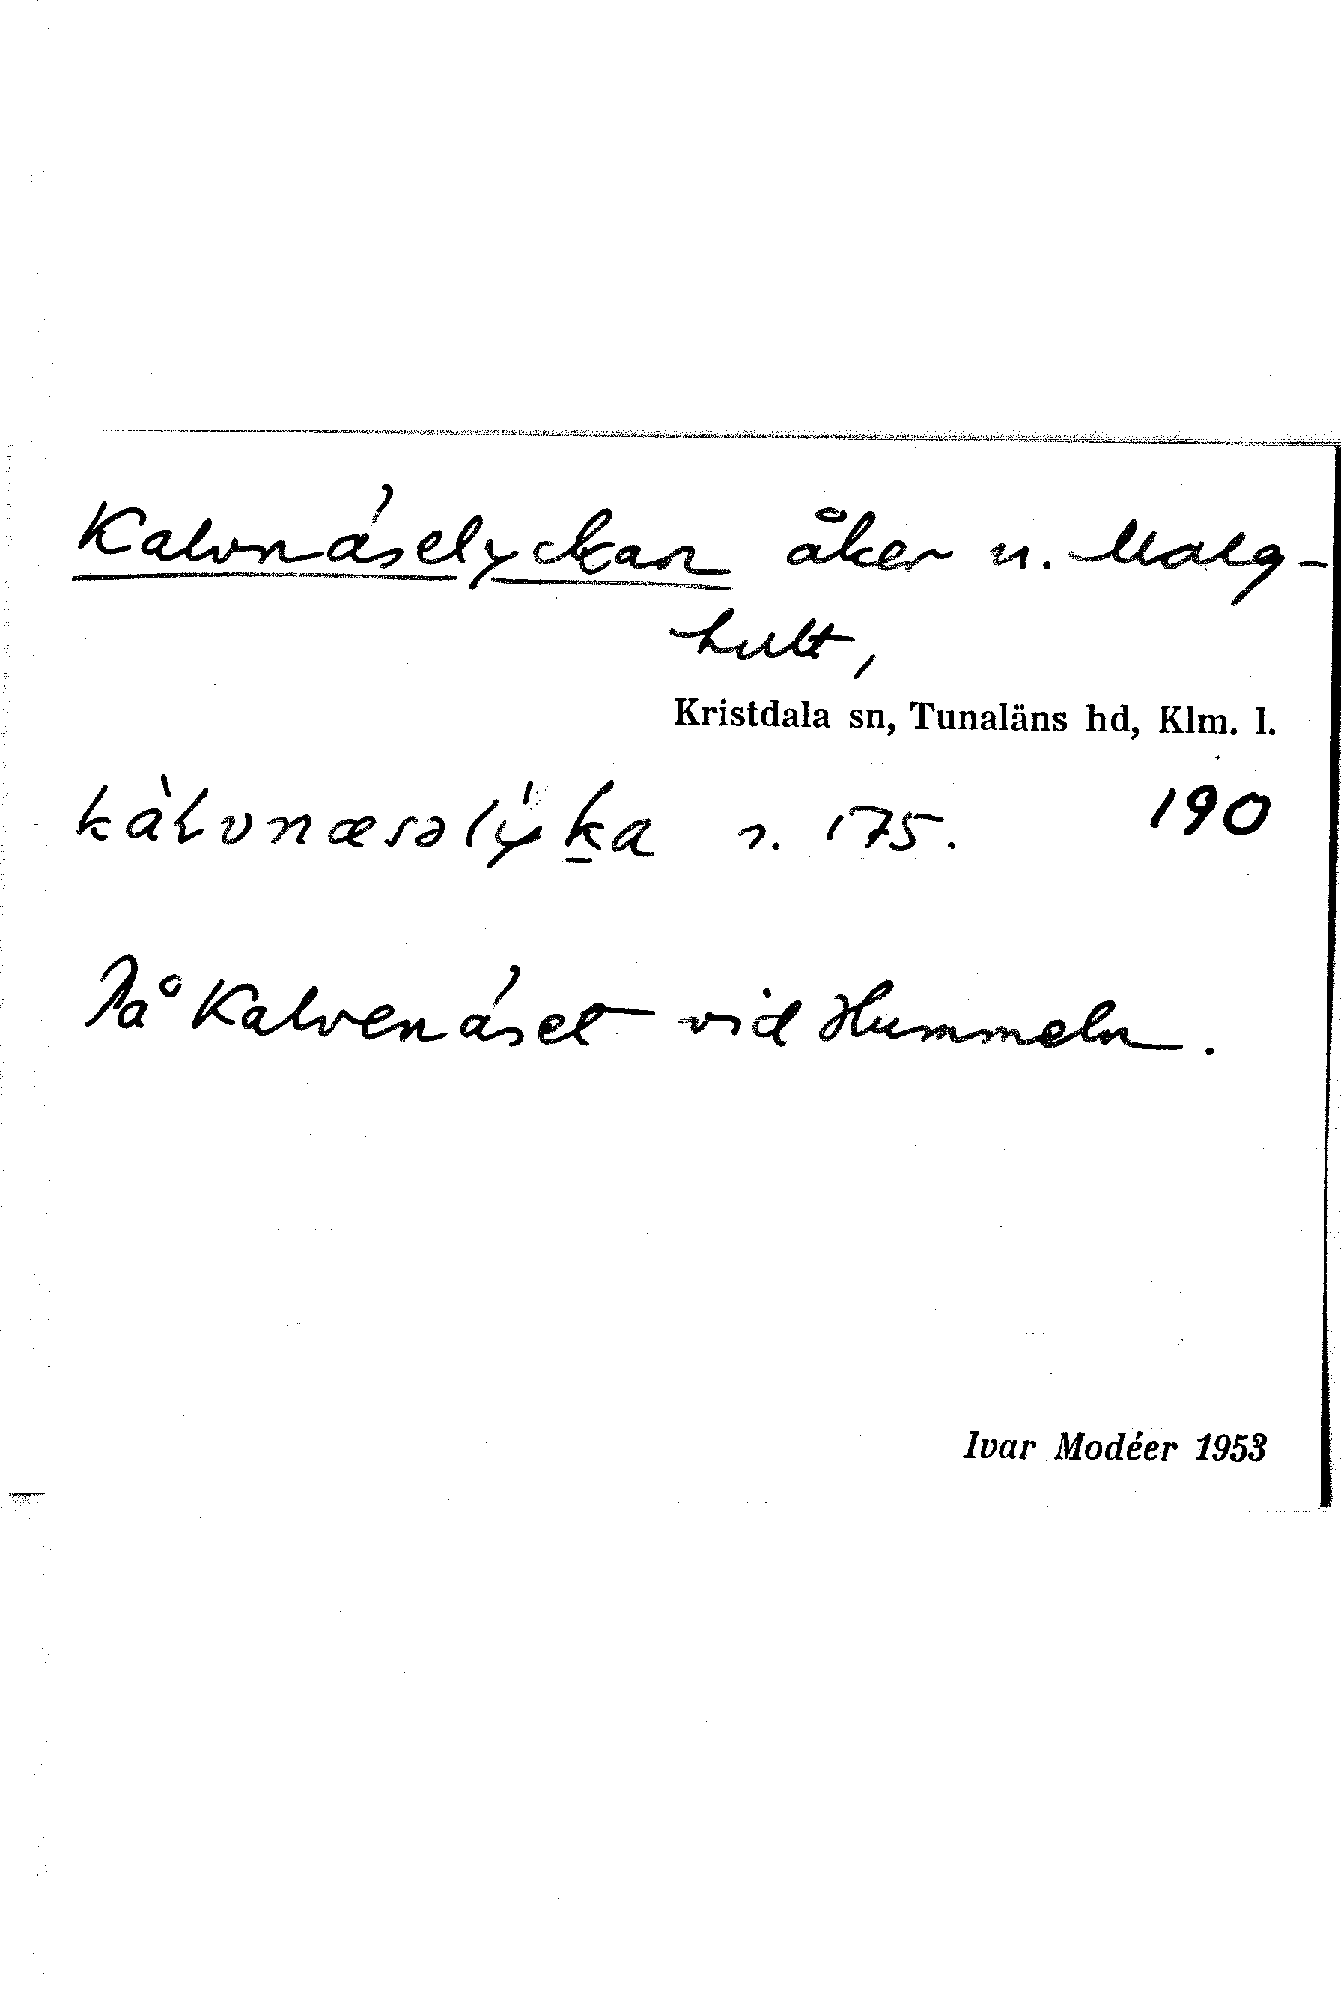 Kalvnäselyckan åker u. Malg-
hult,
Kristdala sn, Tunaläns hd, Klm. l.
kàlvnæsəlýka n. 175. 190
På Kalvenäset vid Hummeln.
Ivar Modéer 1953